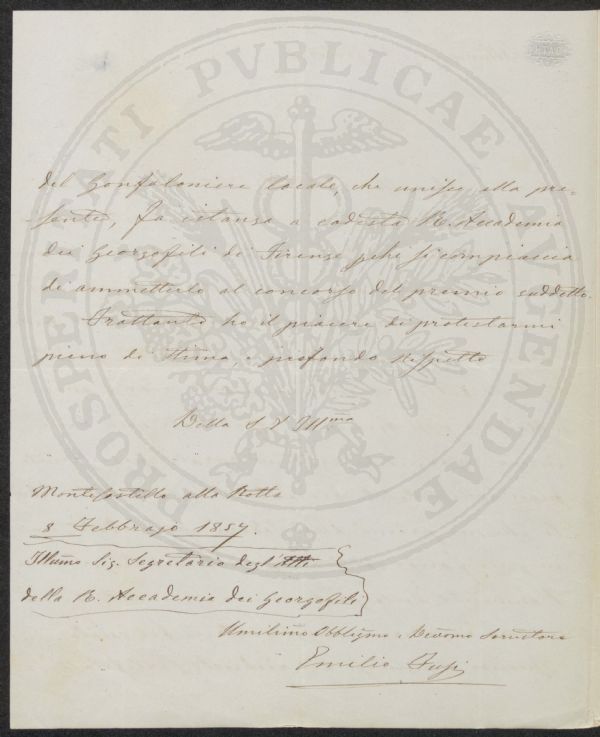 PROSPERITATI PVBLICAE AVGENDAE
del Gonfaloniere locale, che unisce alla pre-
sente, fa istanza a codesta R. Accademia
dei Georgofili di Firenze pchè si compiaccia
di ammetterlo al concorso del premio suddetto.
Frattanto ho il piacere di protestarmi
pieno di stima, e profondo rispetto
Della S V Illma
Montecastello alla Rotta
8 Febbrajo 1857.
Illumo Sig. Segretario degl'Atti
della R. Accademia dei Georgofili
Umilimo Obbligmo e Devomo Servitore
Emilio